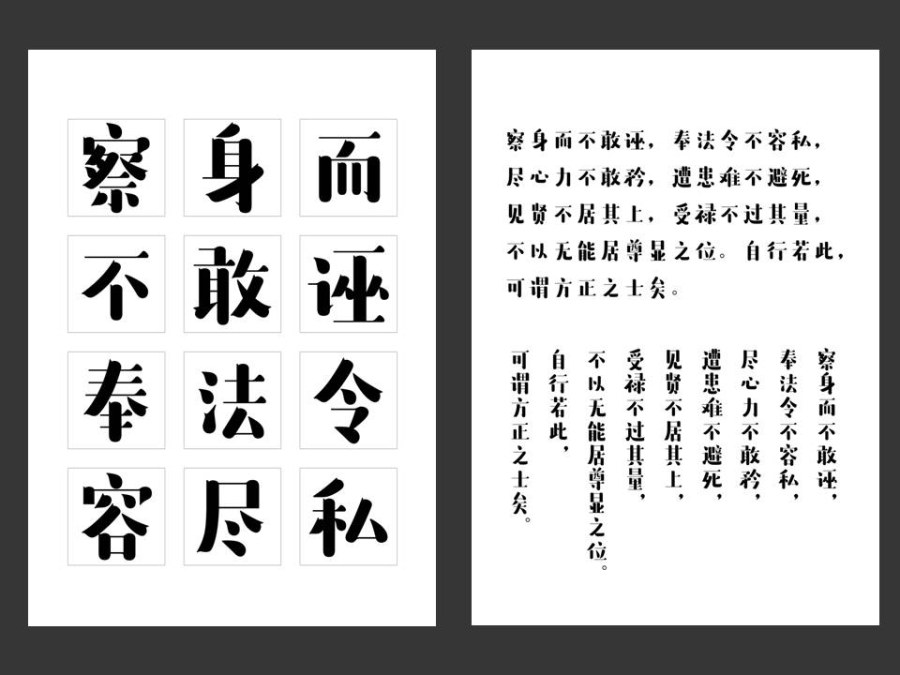 察身而
不敢诬
奉法令
容尽私
察身而不敢诬，奉法令不容私，
尽心力不敢矜，遭患难不避死，
见贤不居其上，受禄不过其量，
不以无能居尊显之位。自行若此，
可谓方正之士矣。
察身而不敢诬，
奉法令不容私，
尽心力不敢矜，
遭患难不避死，
见贤不居其上，
受禄不过其量，
不以无能居尊显之位。
自行若此，
可谓方正之士矣。